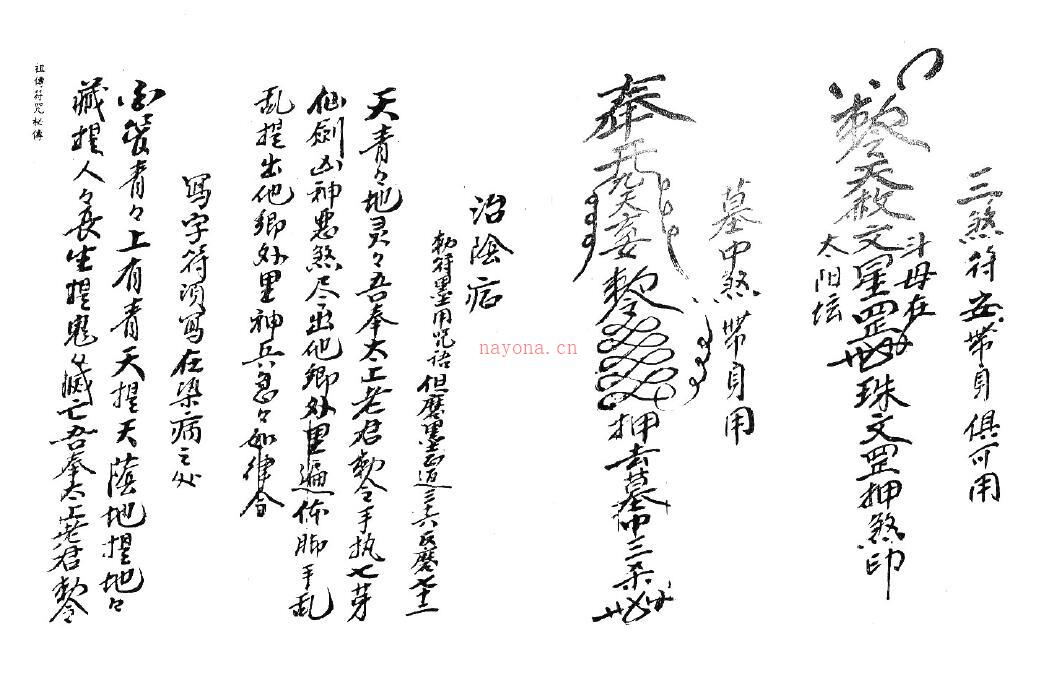 三煞符安带身俱可用
敕令天赦文星罡珠文罡押煞印
斗母在
太阳坛
墓中煞带身用
奉敕令押去墓中三杀
治陰症
勅符墨用咒语但磨墨正道三六反磨七十二
天青々地灵々吾奉太上老君敕令手执七芽
仙劍凶神悪煞尽出他鄉外里遍体脚手乱
乱提出他鄉外里神兵急々如律令
寫字符須寫在染病之处
青々上有青天提天蔭地提地々
藏提人々長生提鬼々滅亡吾奉太上老君敕令
祖傳符咒秘傳
nayona.cn